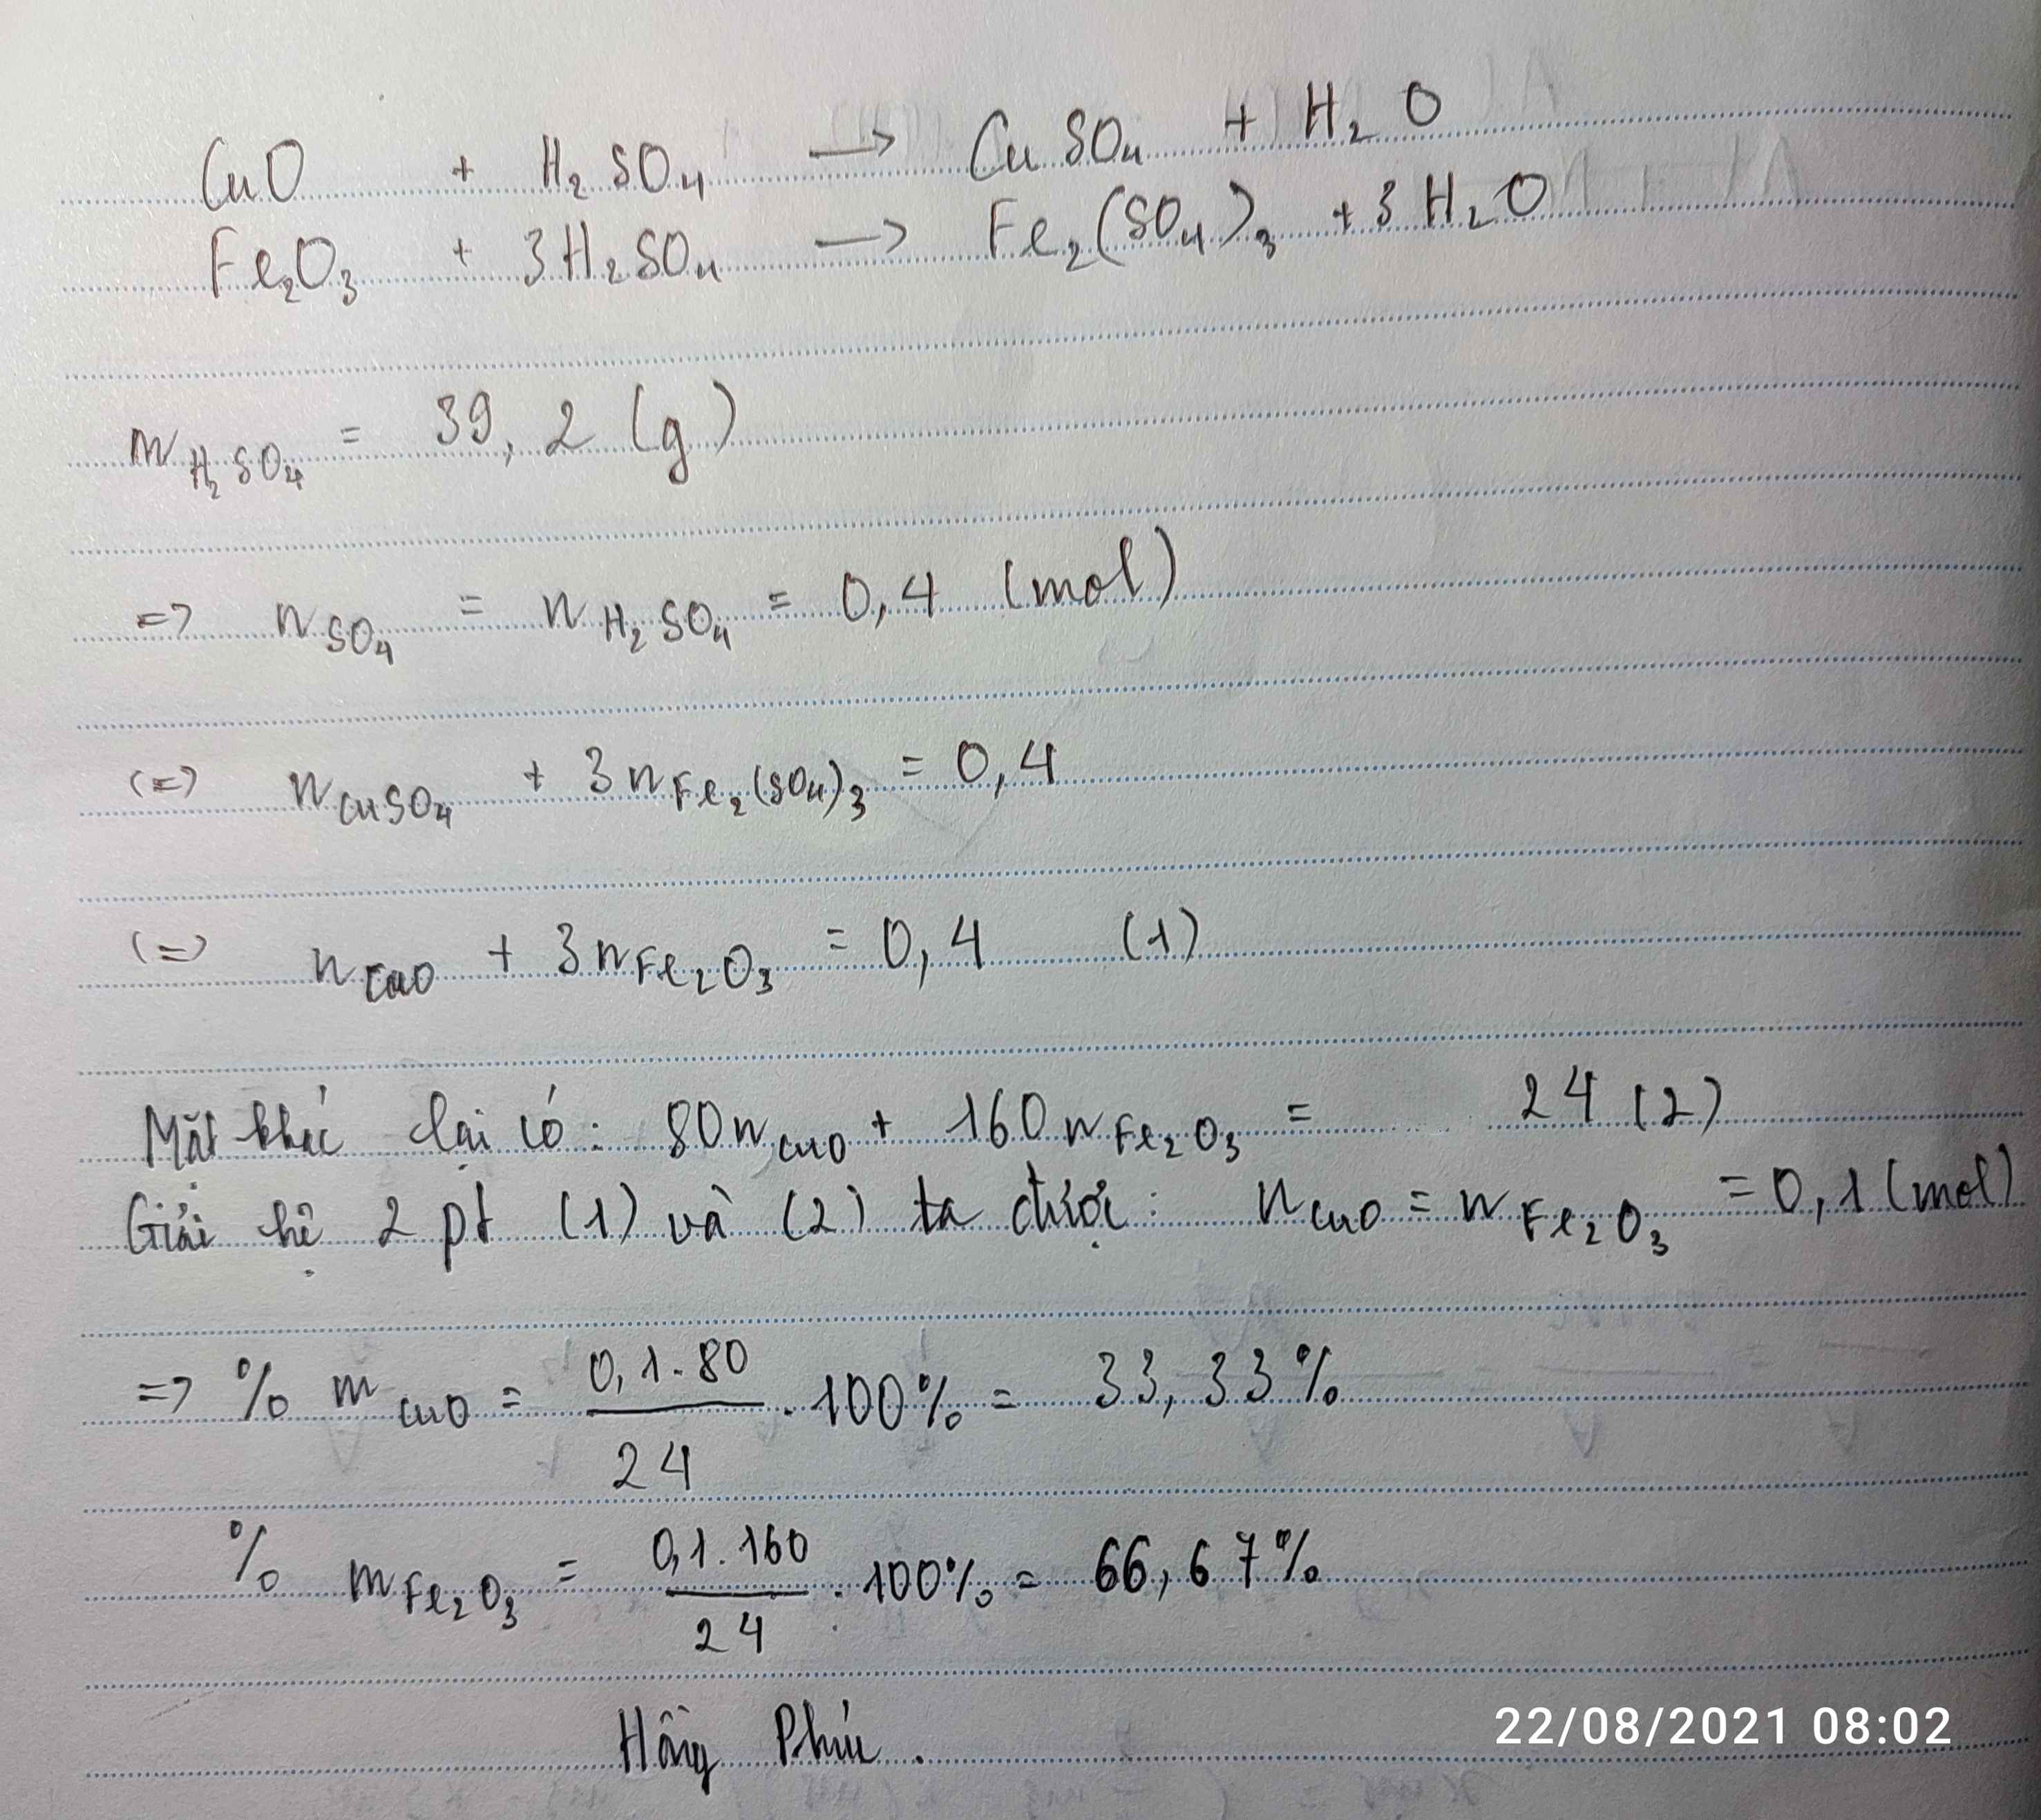 CuO + H₂SO₄ → CuSO₄ + H₂O
Fe₂O₃ + 3H₂SO₄ → Fe₂(SO₄)₃ + 3H₂O
m H₂SO₄ = 39,2 (g)
=> n SO₄ = n H₂SO₄ = 0,4 (mol)
(=) n CuSO₄ + 3n Fe₂(SO₄)₃ = 0,4
(=) n CuO + 3n Fe₂O₃ = 0,4 (1)
Mặt khác lại có: 80n CuO + 160n Fe₂O₃ = 24 (2)
Giải hệ 2 pt (1) và (2) ta được: n CuO = n Fe₂O₃ = 0,1 (mol)
=> % m CuO = 0,1.80 / 24 . 100% = 33,33%
% m Fe₂O₃ = 0,1.160 / 24 . 100% = 66,67%
Hồng Phúc.
22/08/2021 08:02